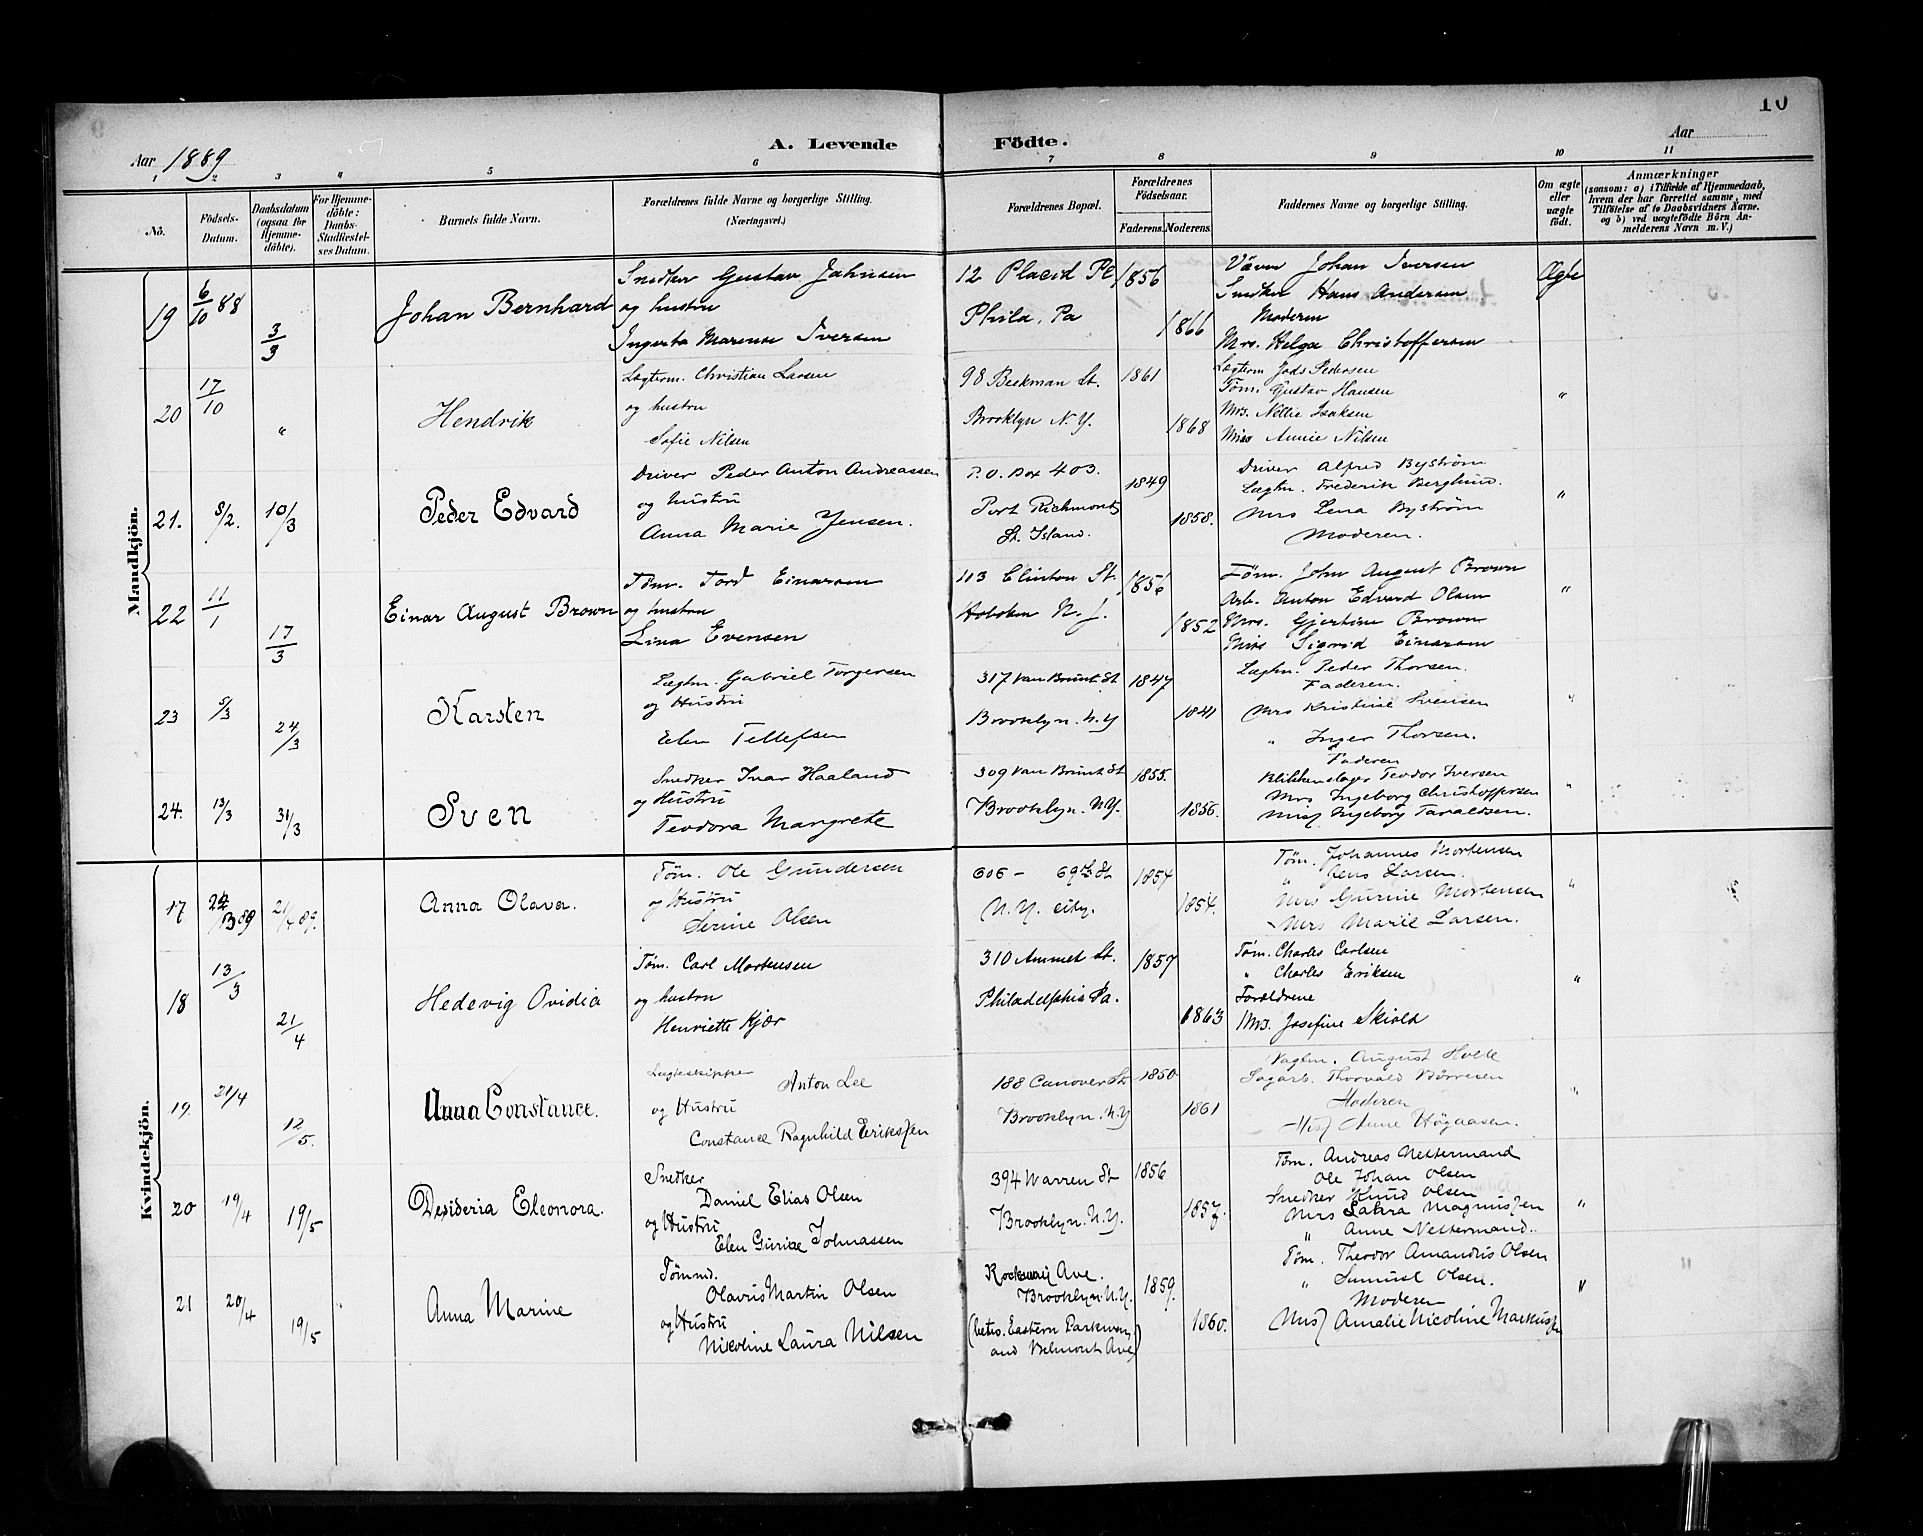 10
Aar 1889
A. Levende Födte.
Aar
1 2 3 4 5 6 7 8 9 10 11
Nô.
Födsels-Datum.
Daabsdatum (ogsaa for Hjemme-döbte).
For Hjemme-döbte: Daabs-Stadfæstel-ses Datum.
Barnets fulde Navn.
Forældrenes fulde Navne og borgerlige Stilling. (Næringsvei.)
Forældrenes Bopæl.
Forældrenes Födselsaar.
Faderens. Moderens.
Faddernes Navne og borgerlige Stilling.
Om ægte eller uægte födt.
Anmærkninger
(saasom: a) i Tilfælde af Hjemmedaab, hvem der har forrettet samme, med Tilföielse af to Daabsvidners Navne. og b) ved uægtefödte Börn An-melderens Navn m. V.)
Mandkjön.
19 6/10 88 3/3 Johan Bernhard
Snedker Gustav Jahnsen
og hustru
Ingerta Marense Iversen
12 Placid Pl
Phila, Pa
1856 1866
Væver Johan Iversen
Snedker Hans Andersen
Moderen
Mrs. Helga Christoffersen
Ægte
20 17/10 " Hendrik
Lægterm. Christian Larsen
og hustru
Sofie Nilsen
98 Beekman St.
Brooklyn N.Y.
1861 1868
Lægterm Pedersen
Töm. Gustav Hansen
Mrs. Nellie Isaksen
Miss Annie Nilsen
"
21. 5/2. 10/3 Peder Edvard
Driver Peder Anton Andreassen
og Hustru
Anna Marie Jensen.
P.O. Box 403.
Port Richmond
St. Island.
1849 1858.
Driver Alfred Byström
Lægtm. Frederik Berglund.
Mrs Lena Byström
Moderen.
"
22 11/1 17/3 Einar August Brown
Töm. Tord Einarsen
og hustru
Lina Evensen
113 Clinton St.
Hoboken N.J.
1856 1852
Töm. John August Brown
Arb. Anton Edvard Olsen
Mrs. Gjertine Brown
Miss Sigrid Einarsen
"
23 5/3 24/3 Karsten
Lægtm. Gabriel Torgersen
og Hustru
Elen Tellefsen
317 Van Brunt St
Brooklyn. N.Y
1847 1841
Lægtm. Peder Thorsen.
Faderen.
Mrs Kristine Svensen
" Inger Thorsen.
"
24. 13/3 31/3 Sven
Snedker Ivar Haaland
og Hustru
Teodora Margrete
309 Van Brunt St
Brooklyn. N.Y.
1855. 1856.
Faderen
Blikkenslager Teodor Iversen
Mrs Ingeborg Christoffersen
Miss Ingeborg Taraldsen.
"
Kvindekjön.
17 89 21/4 89. Anna Olava.
Töm. Ole Gundersen
og Hustru
Serine Olsen
606 - 69th St
N.Y. city.
1854 1854.
Töm. Johannes Mortensen
" Jens Larsen.
Mrs Gurine Mortensen
Mrs Marie Larsen.
"
18 13/3 21/4 Hedevig Ovidia
Töm. Carl Mortensen
og hustru
Henriette Kjær
310 Ammet St.
Philadelphia Pa.
1857 1863
Töm. Charles Carlsen
" Charles Eriksen
Forældrene
Mrs. Josefine Skiold
"
19. 21/4 12/5. Anna Constance.
Lægteskipper Anton Lee
og Hustru
Constance Ragnhild Eriksen
188 Conover St.
Brooklyn. N.Y
1850 1861
Vagtm. August Holte
Sagarb. Thorvald Börresen
Moderen
Miss Anne Högaasen.
"
20 19/4 19/5 Desideria Eleonora.
Snedker
Daniel Elias Olsen
og Hustru
Elen Gurine Johnassen
394 Warren St
Brooklyn. N.Y.
1856 1857.
Töm. Andreas Nettermand
Ole Johan Olsen
Snedker Knud Olsen
Mrs Laura Magnussen
" Anne Nettermand.
"
21 20/4 19/5 " Anna Marine
Tömmd.
Olavus Martin Olsen
og Hustru
Nicoline Laura Nilsen
Rockway Ave.
Brooklyn N.Y.
(betw. Eastern Parkway
and Belmont Ave)
1859. 1860.
Töm. Theodor Amandus Olsen
" Samuel Olsen.
Moderen
Miss Amalie Nicoline Markussen
"